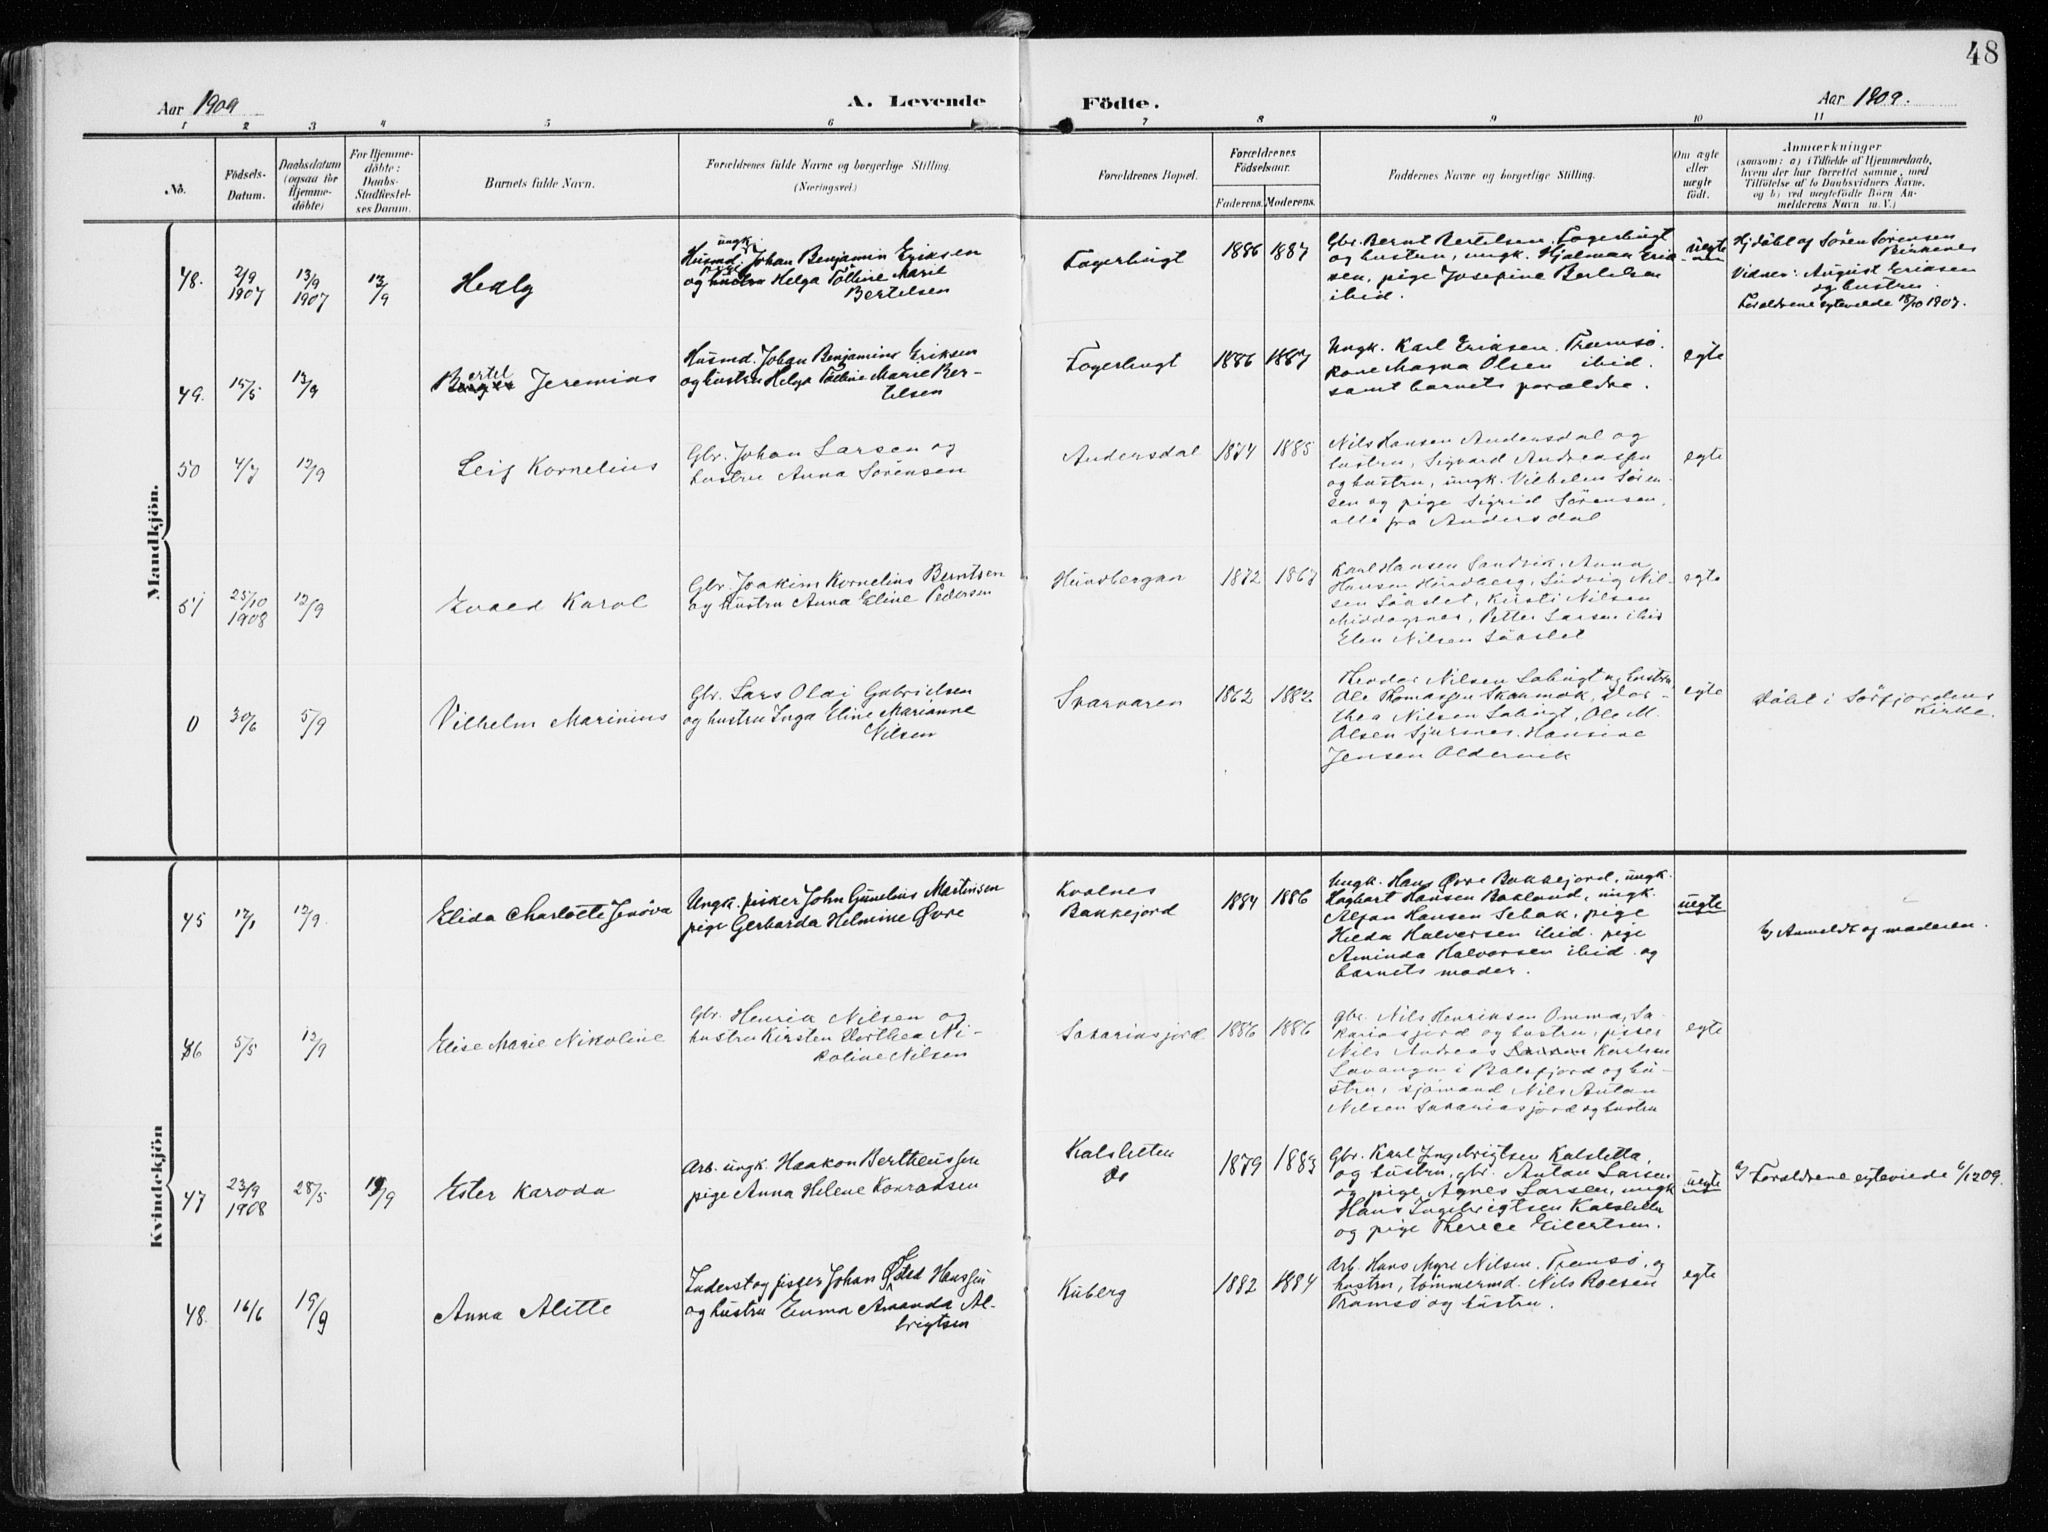 48
Aar 1909
A. Levende
Födte.
Aar 1909.
1 2 3 4 5 6 7 8 9 10 11
No.
Födsels-
Datum.
Daabsdatum
(ogsaa for
Hjemme-
döbte)
For Hjemme-
döbte:
Daabs-
Stadfæstel-
ses Datum.
Barnets fulde Navn.
Forældrenes fulde Navne og borgerlige Stilling.
(Næringsvei.)
Forældrenes Bopæl.
Forældrenes
Födselsaar.
Faderens. Moderens.
Faddernes Navne og borgerlige Stilling.
Om ægte
eller
uægte
födt.
Anmærkninger
(saasom: a) i Tilfælde af Hjemmedaab,
hvem der har forrettet samme, med
Tilföielse af to Daabsvidners Navne,
og b) ved uegtefödte Börn An-
melderens Navn m. V.)
Mandkjön.
48.
2/9
1907
13/9
1907
13/9
Hedly
ungk.
Husmd. Johan Benjamin Eriksen
pige
og hustru Helga Tolline Marie
Bertelsen
Fagerbugt
1886 1887
Gbr. Bernt Bertelsen Fagerbugt
og hustru, ungk. Hjalmar Erik-
sen, pige Josefine Bertelsen
ibid.
uegte
Hjdöbt af Sören Sörensen
Birkenes
Vidner: August Eriksen
og hustru.
Foraldrene egteviede 18/10 1907.
49.
15/5
12/9
ertel
Berger Jeremias
Husmd. Johan Benjamins Eriksen
og hustru Helga Tolline Marie Ber-
telsen
Fagerbugt
1886 1887
Ungk. Karl Eriksen. Tromsö.
kone Magna Olsen ibid.
samt barnets forældre.
egte
50
4/7
12/9
Leif Kornelius
Gbr. Johan Larsen og
hustru Anna Sorensen
Andersdal
1874 1885
Nils Hansen Andersdal og
hustru, Sigvard Andreassen
og hustru, ungk. Vilhelm Sören-
sen og pige Sigrid Sörensen,
alle fra Andersdal
egte
51
25/10
1908
12/9
Evald Karol
Gbr. Joakim Kornelius Berntsen
og hustru Anna Eline Pedersen
Hundbergan
1872 1867
Karl Hansen Sandvik, Anna
Hansen Hundberg, Ludvig Nil-
sen Slåstet, Kirsti Nilsen
Middagsnes, Petter Larsen ibid
Elen Nilsen Slåstet
egte
0
30/6
5/9
Vilhelm Marinius
Gbr. Lars Oldi Gabrielsen
og hustru Inga Eline Marianne
Nilsen
Svarvaren
1862 1882
Theodor Nilsen Labugt og hustru
Ole Thomassen Skarmok, Dor-
thea Nilsen Labugt, Ole M.
Olsen Sjursnes. Hansine
Jensen Oldervik
egte
döbt i Sörfjordens
kirke.
Kvindekjön
45
12/9.
Elida Charlotte Jenöva
Ungk. fisker John Gunelius Martinsen
pige Gerharda Helmine Övre
Kvalnes
Bakkejord
1884 1886
Ungk. Hans Övre Bakkejord, ungk.
Hagbart Hansen Bakland, ungk.
Alfon Hansen Sebak, pige
Hilda Halvorsen ibid. pige
Aminda Halvorsen ibid. og
barnets moder.
uegte
b) Anmeldt og moderen.
46
5/5
12/9
Elise Marie Nikoline
Gbr. Henrik Nilsen og
hustru Kirsten Dorthea Ni-
koline Nilsen
Sakariasjord
1886 1886
gbr. Nils Henriksen Omma, Sa-
kariasjord og hustru, fisker
Nils Andreas Larsen Karlsen
Lavangen i Balsfjord og hu-
stru, sjömand Nils Antan
Nilsen Sakariasjord og hustru
egte
47
23/9
1908
28/5
19/9
Ester Karoda
Arb. ungk. Haakon Bertheussen
pige Anna Helene Konradsen
Kalsletten
do
1879 1883
Gbr. Karl Ingebrigtsen Kalsletta,
og hustru, gbr. Antan Larsen
og pige Agnes Larsen, ungk.
Hans Ingebrigtsen Kalsletta
og pige Therese Eilertsen.
uegte
b/ Foraldrene egteviede 6/12 09.
48.
16/6
19/9
Anna Alette
Inderst og fisker Johan Östed Hanssen
og hustru Emma Amanda Al-
brigtsen
Kuberg
1882 1884
Arb. Hans Myre Nilsen. Tromsö, og
hustru, tömmermd. Nils Roesen
Tromsö og hustru.
egte